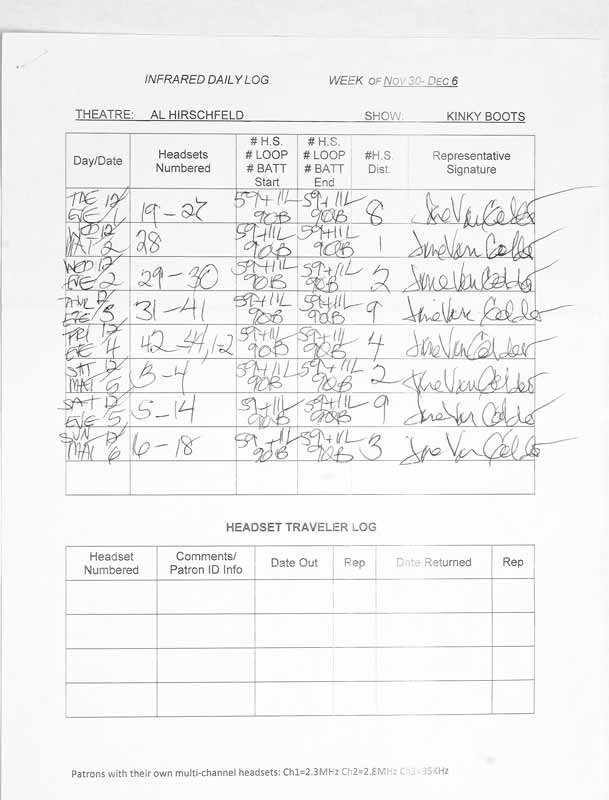 INFRARED DAILY LOG WEEK OF NOV 30- DEC 6
THEATRE: AL HIRSCHFELD SHOW: KINKY BOOTS
Day/Date Headsets Numbered # H.S. # LOOP # BATT Start # H.S. # LOOP # BATT End #H.S. Dist. Representative Signature
TUE 12/1 EVE 19-27 59+11L 90B 59+11L 90B 8
WED 12/2 MAT 28 59+11L 90B 59+11L 90B 1
WED 12/2 EVE 29-30 59+11L 90B 59+11L 90B 2
THUR 12/3 EVE 31-41 59+11L 90B 59+11L 90B 9
FRI 12/4 EVE 42-44,1-2 59+11L 90B 59+11L 90B 4
SAT 12/5 MAT 3-4 59+11L 90B 59+11L 90B 2
SAT 12/5 EVE 5-14 59+11L 90B 59+11L 90B 9
SUN 12/6 MAT 6-18 59+11L 90B 59+11L 90B 3
HEADSET TRAVELER LOG
Headset Numbered Comments/ Patron ID Info Date Out Rep Date Returned Rep
Patrons with their own multi-channel headsets: Ch1=2.3MHz Ch2=2.8MHz Ch3=95KHz